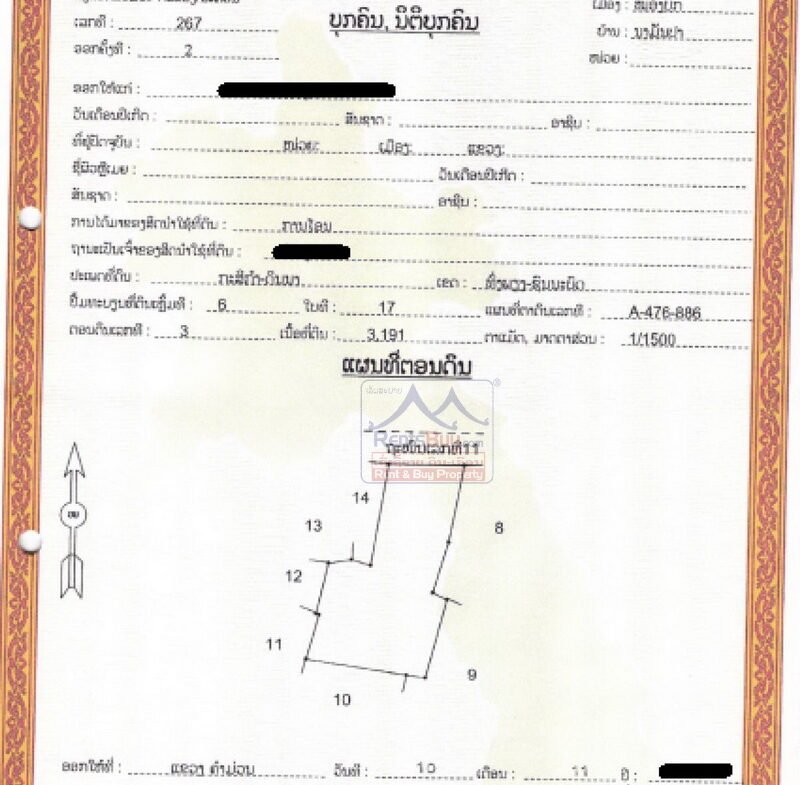 ເລກທີ : 267
ບຸກຄົນ, ນິຕິບຸກຄົນ
ເມືອງ : ໜອງບົກ
ອອກຄັ້ງທີ : 2
ບ້ານ :
ໜ່ວຍ :
ອອກໃຫ້ແກ່ :
ວັນເດືອນປີເກີດ : ສັນຊາດ : ອາຊີບ :
ທີ່ຢູ່ປັດຈຸບັນ : ໜ່ວຍ: ເມືອງ: ແຂວງ:
ຊື່ຜົວຫຼືເມຍ : ວັນເດືອນປີເກີດ :
ສັນຊາດ : ອາຊີບ :
ການໄດ້ມາຂອງສິດນຳໃຊ້ທີ່ດິນ : ການໂອນ
ຖານະເປັນເຈົ້າຂອງສິດນຳໃຊ້ທີ່ດິນ :
ປະເພດທີ່ດິນ : ກະສິກຳ-ດິນນາ ເຂດ : ທົ່ງພຽງ-ຊົນນະບົດ
ປຶ້ມທະບຽນທີ່ດິນເຫຼັ້ມທີ : 6 ໃບທີ : 17 ແຜນທີ່ຕາດິນເລກທີ : A-476-886
ຕອນດິນເລກທີ : 3 ເນື້ອທີ່ດິນ : 3,191 ຕາແມັດ, ມາດຕາສ່ວນ : 1/1500
ແຜນທີ່ຕອນດິນ
RentsBuy.com
Rent & Buy Property
ຖະໜົນເລກທີ11
14
13
8
12
11
9
10
ອອກໃຫ້ທີ່ : ແຂວງ ຄຳມ່ວນ ວັນທີ : 10 ເດືອນ : 11 ປີ :